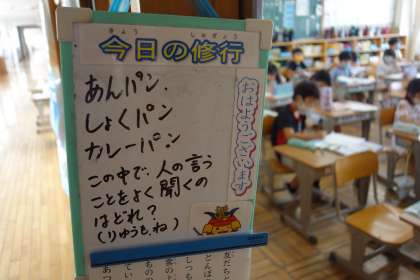 きょう しゅぎょう
今日の修行
おはようございます
あんパン.
しょくパン
カレーパン
この中で、人の言う
ことをよく聞くの
はどれ?
(りゆうも、ね)